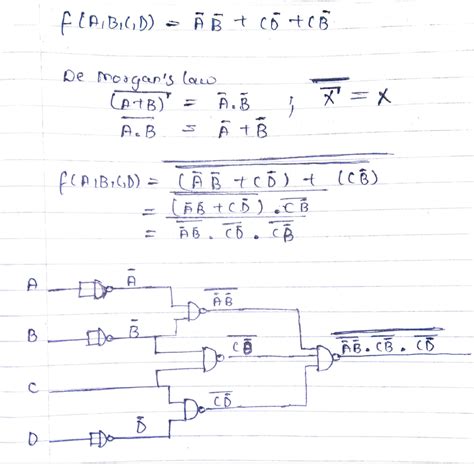 f(A,B,C,D) = A̅ B̅ + C D̅ + C B̅
De Morgan's law
(A+B)̅ = A̅ . B̅ ; X̿ = X
A̅.̅B̅ = A̅ + B̅
f(A,B,C,D) = (A̅ B̅ + C D̅) + (C B̅)
= (A̅ B̅ + C D̅) . C B̅
= A̅ B̅ . C D̅ . C B̅
A A̅ A̅ B̅
B B̅ C B̅ A̅ B̅ . C B̅ . C D̅
C C D̅
D D̅